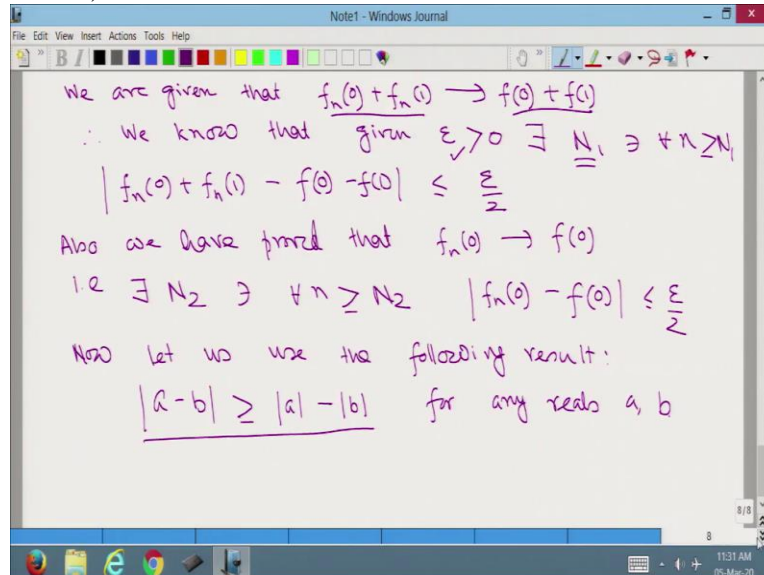 Note1 - Windows Journal
File Edit View Insert Actions Tools Help
B I
We are given that fₙ(0) + fₙ(1) → f(0) + f(1)
∴ We know that given ε > 0 ∃ N₁ ∋ ∀ n ≥ N₁
| fₙ(0) + fₙ(1) - f(0) - f(1) | ≤ ε/2
Also we have proved that fₙ(0) → f(0)
i.e ∃ N₂ ∋ ∀ n ≥ N₂ | fₙ(0) - f(0) | ≤ ε/2
Now let us use the following result:
|a - b| ≥ |a| - |b| for any reals a, b
8/8
8
11:31 AM
05-Mar-20